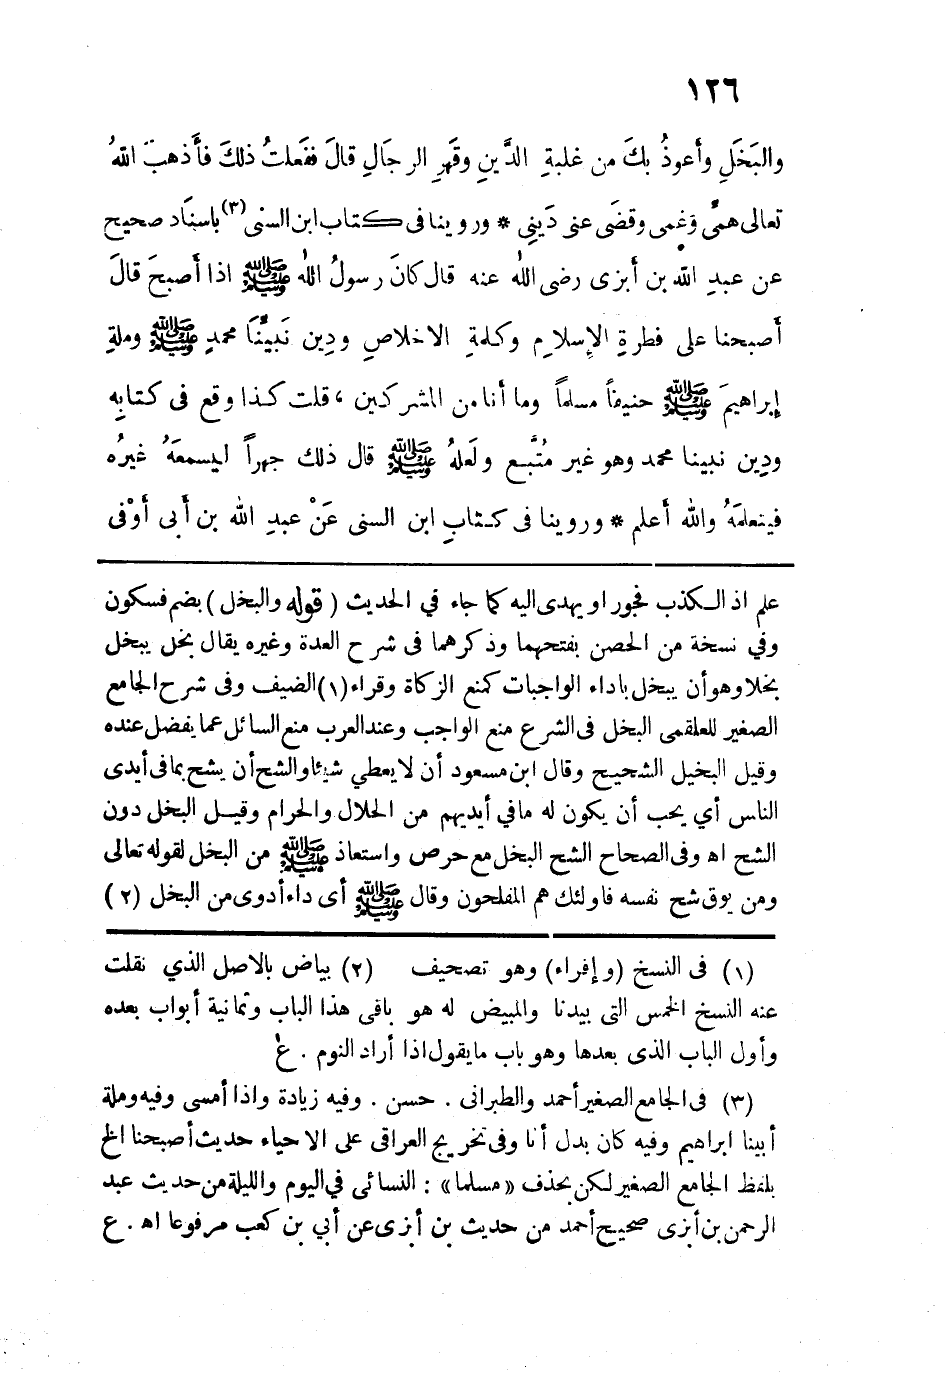 ١٢٦
والبَخَلِ وأعوذُ بكَ من غلبةِ الدَّينِ وقهرِ الرجَالِ قالَ ففَعلتُ ذلكَ فأَذهبَ اللهُ
تعالى همَّى وَغمى وقضَى عنى دَينِى * وروينا فى كتاب ابن السنى (٣) باسنَاد صحيح
عن عبدِ اللهِ بن أبزى رضى اللهُ عنه قال كانَ رسولُ اللهِ ﷺ اذا أصبحَ قالَ
أَصبحنا على فطرةِ الإسلامِ وكلمةِ الاخلاصِ ودِين نَبيِّنَا محمدٍ ﷺ وملةِ
إبراهيمَ ﷺ حنيفاً مسلماً وما أنا من المشركين ، قلت كذا وقع فى كتابِه
ودِين نبينا محمد وهو غير مُتَّبع ولَعلهُ ﷺ قال ذلك جهراً ليسمعَهُ غيرُه
فيتعلمَهُ والله أعلم * وروينا فى كتابِ ابن السنى عَنْ عبدِ الله بن أبى أوْفى
علم اذ الكذب فجور او يهدى اليه كما جاء في الحديث ( قوله والبخل ) بضم فسكون
وفي نسخة من الحصن بفتحهما وذكرهما فى شرح العدة وغيره يقال بخل يبخل
بخلا وهو أن يبخل باداء الواجبات كمنع الزكاة وقراء (١) الضيف وفى شرح الجامع
الصغير للعلقمى البخل فى الشرع منع الواجب وعند العرب منع السائل عما يفضل عنده
وقيل البخيل الشحيح وقال ابن مسعود أن لا يعطي شيئا والشح أن يشح بما فى أيدى
الناس أي يحب أن يكون له ما في أيديهم من الحلال والحرام وقيل البخل دون
الشح اه وفى الصحاح الشح البخل مع حرص واستعاذ ﷺ من البخل لقوله تعالى
ومن يوق شح نفسه فاولئك هم المفلحون وقال ﷺ أى داء أدوى من البخل (٢)
(١) فى النسخ (وإفراء) وهو تصحيف (٢) بياض بالاصل الذي نقلت
عنه النسخ الخمس التى بيدنا والمبيض له هو باقى هذا الباب وثمانية أبواب بعده
وأول الباب الذى بعدها وهو باب ما يقول اذا أراد النوم . ع
(٣) فى الجامع الصغير أحمد والطبرانى . حسن . وفيه زيادة واذا أمسى وفيه وملة
أبينا ابراهيم وفيه كان بدل أنا وفى تخريج العراقى على الاحياء حديث أصبحنا الخ
بلفظ الجامع الصغير لكن بحذف «مسلما» : النسائى في اليوم والليلة من حديث عبد
الرحمن بن أبزى صحيح أحمد من حديث بن أبزى عن أبي بن كعب مرفوعا اه . ع